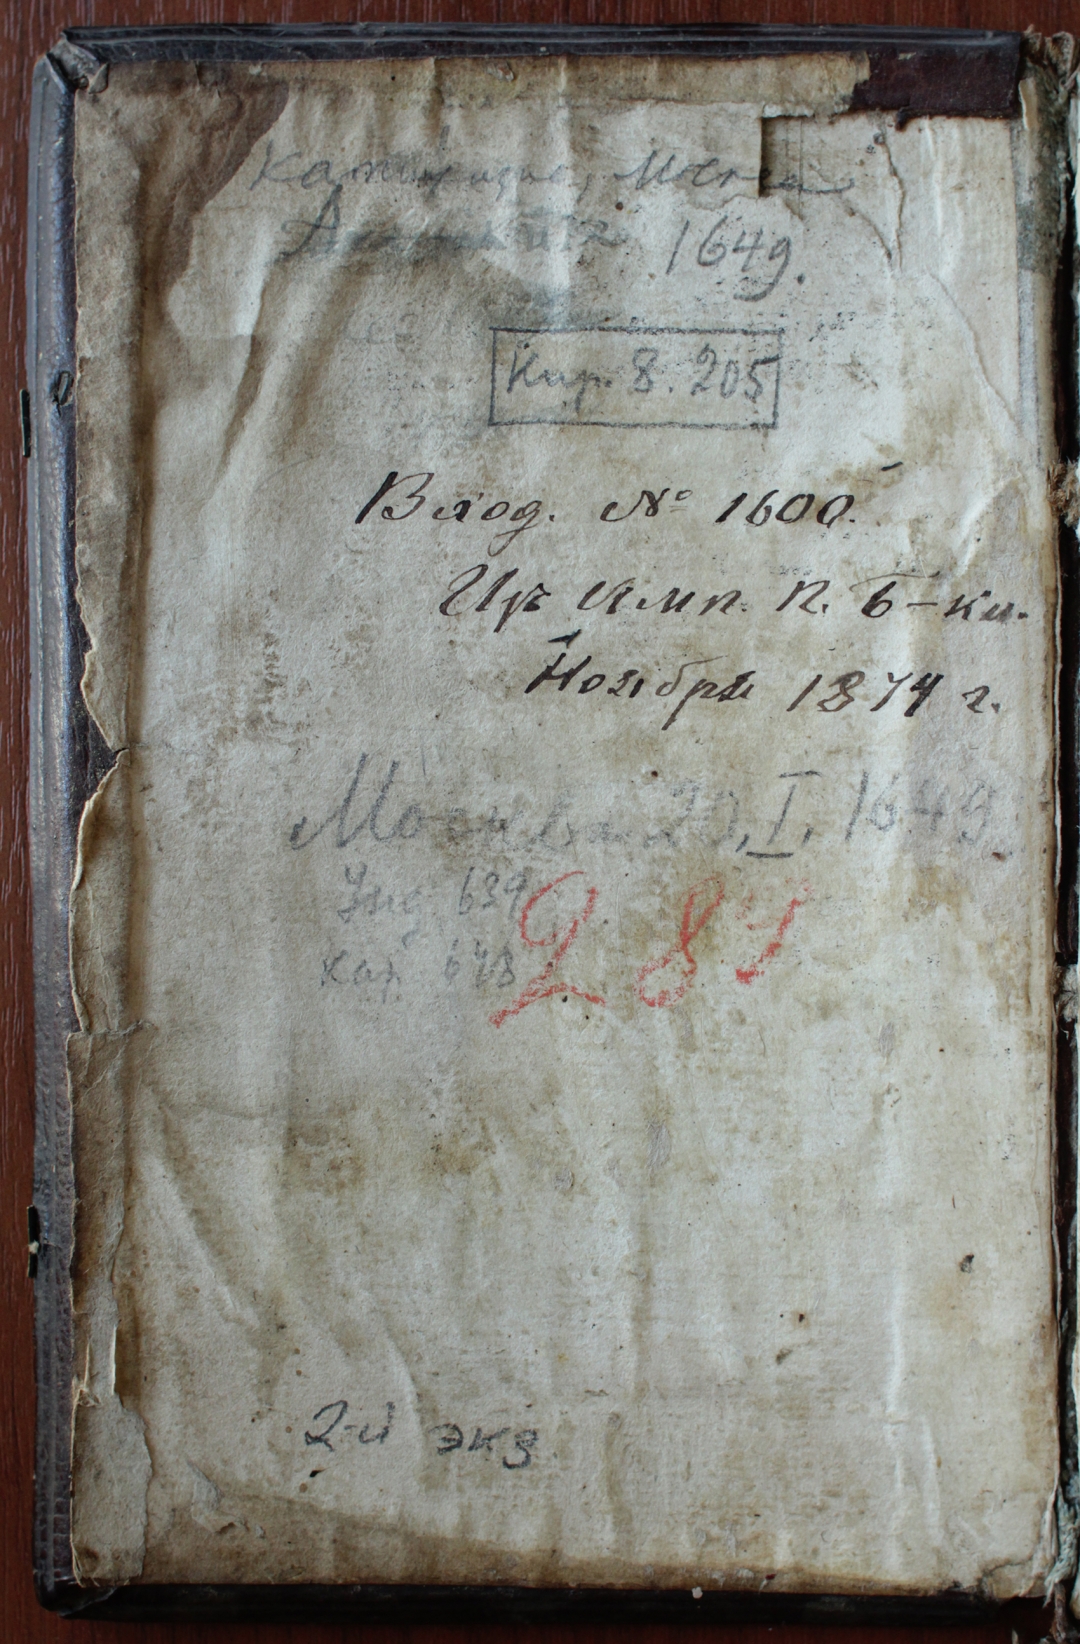 Катихизис, Москва
1649.
Кир. 8. 205
Вход. № 1600.
Изъ Имп. П. Б-ки.
Ноября 1874 г.
Москва 20, I, 1649
Унд. 639
Кар. 648
281
2-й экз